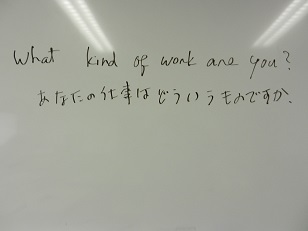 What kind of work are you?
あなたの仕事はどういうものですか.